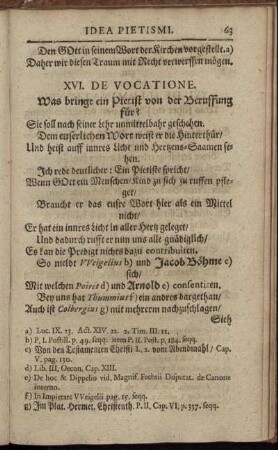 IDEA PIETISMI. 63
Den GOtt in seinem Wort der Kirchen vorgestellt. a)
Daher wir diesen Traum mit Recht verwerffen mögen.
XVI. DE VOCATIONE.
Was bringt ein Pietist von der Beruffung
für?
Sie soll nach seiner Lehr unmittelbahr geschehen.
Dem euserlichen Wort weist er die Hinterthür/
Und heist auff innres Licht und Hertzens-Saamen se-
hen.
Ich rede deutlicher: Ein Pietiste spricht/
Wenn GOtt ein Menschen-Kind zu sich zu ruffen pfle-
get/
Braucht er das eusre Wort hier als ein Mittel
nicht/
Er hat ein innres Licht in aller Hertz geleget/
Und dadurch rufft er nun uns alle gnädiglich/
Es kan die Predigt nichts dazu contribuiren.
So meldt VVeigelius b) und Jacob Böhme c)
sich/
Mit welchen Poiret d) und Arnold e) consentiren,
Bey uns hat Thummius f) ein andres dargethan/
Auch ist Colbergius g) mit mehrerm nachzuschlagen/
Sieh
a) Luc. IX. 23. Act. XIV. 22. 2. Tim. III. 12.
b) P. I. Postill. p. 49. seqq. item P. II. Post. p. 184. seqq.
c) Von des Testamenten Christi L. 2. vom Abendmahl / Cap.
V. pag. 130.
d) Lib. III, Oecon. Cap. XIII.
e) De hoc & Dippelio vid. Magnif. Fechtii Disputat. de Canone
interno.
f) In Impietate VVeigelii pag. 19. seqq.
g) Im Plat. Hermet. Christenth. P. II, Cap. VI, p. 337. seqq.